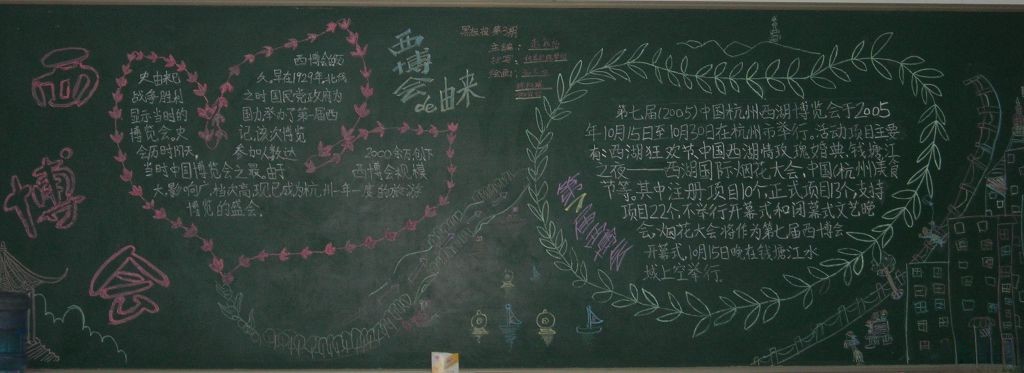 西
博
会
西博会的
史由来已
久,早在1929年,北伐
战争胜利
之时国民党政府为
显示当时的
国力,举办了第一届西
博览会,史
记,该次博览
会历时
参加人数达
2000余万,创下
当时中国博览会之最,由于
西博会规模
大,影响广,档次高,现已成为杭州一年一度的旅游
博览的盛会。
西博会de由来
黑板报第3期
主编:
抄写:
绘画:
第七届(2005)中国杭州西湖博览会于2005
年10月15日至10月30日在杭州市举行。活动项目主要
有:西湖狂欢节、中国西湖情玫瑰婚典、钱塘江
之夜——西湖国际烟花大会、中国杭州美食
节等。其中注册项目10个,正式项目13个,支持
项目22个,不举行开幕式和闭幕式文艺晚
会,烟花大会将作为第七届西博会
开幕式,10月15日晚在钱塘江水
域上空举行。